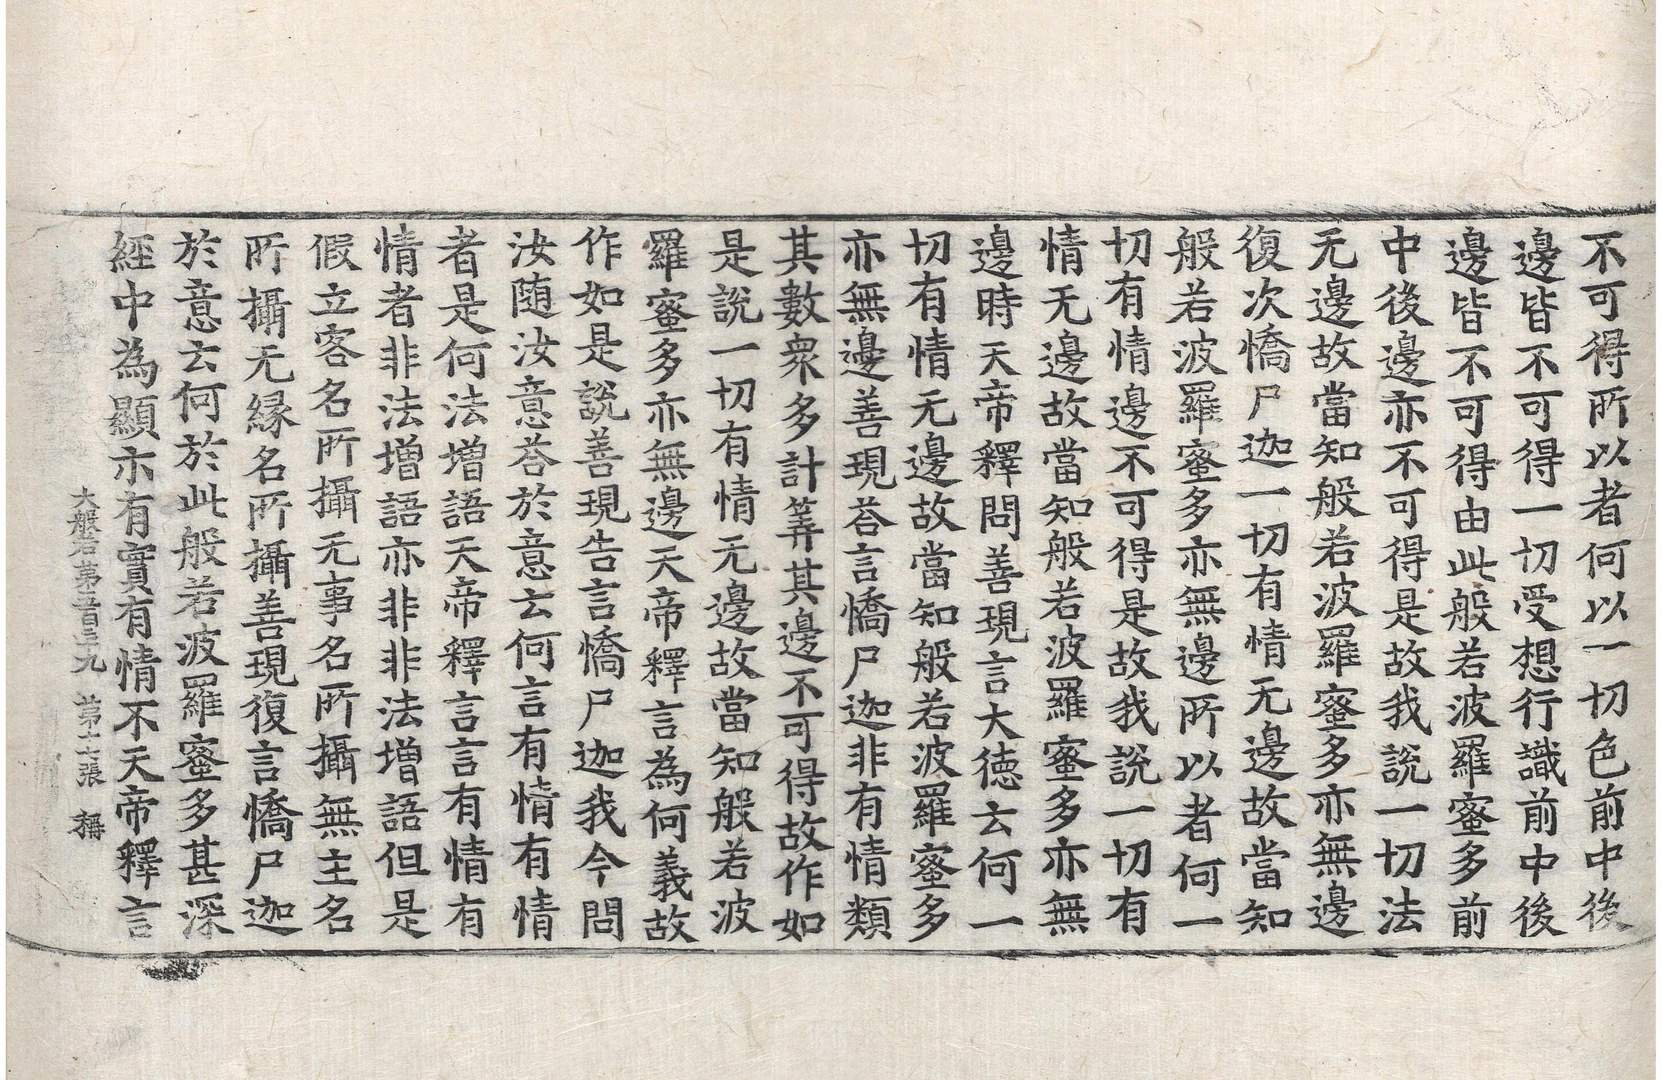 不可得所以者何以一切色前中後
邊皆不可得一切受想行識前中後
邊皆不可得由此般若波羅蜜多前
中後邊亦不可得是故我說一切法
无邊故當知般若波羅蜜多亦無邊
復次憍尸迦一切有情无邊故當知
般若波羅蜜多亦無邊所以者何一
切有情邊不可得是故我說一切有
情无邊故當知般若波羅蜜多亦無
邊時天帝釋問善現言大德云何一
切有情无邊故當知般若波羅蜜多
亦無邊善現荅言憍尸迦非有情類
其數衆多計筭其邊不可得故作如
是說一切有情无邊故當知般若波
羅蜜多亦無邊天帝釋言為何義故
作如是說善現告言憍尸迦我今問
汝随汝意荅於意云何言有情有情
者是何法增語天帝釋言言有情有
情者非法增語亦非非法增語但是
假立客名所攝无事名所攝無主名
所攝无緣名所攝善現復言憍尸迦
於意云何於此般若波羅蜜多甚深
經中為顯示有實有情不天帝釋言
大般若第五百三九 第十七張 稱